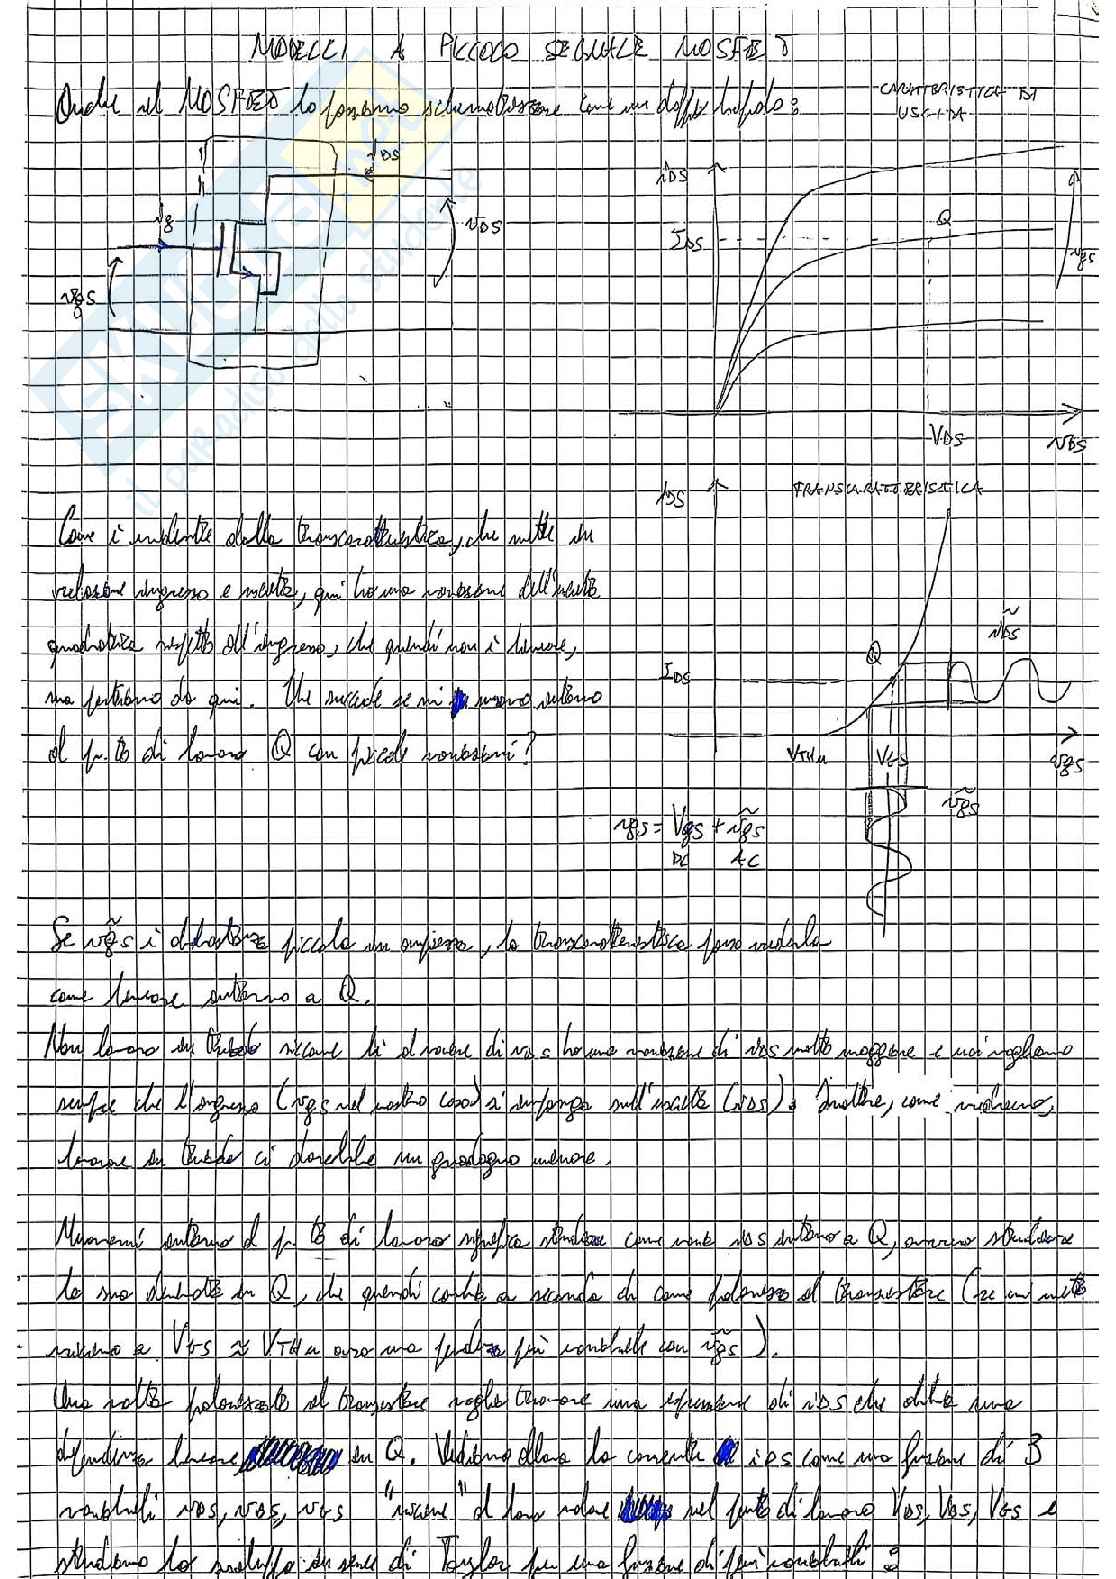 MODELLI A PICCOLO SEGNALE MOSFET
Anche il MOSFET lo possiamo schematizzare come un doppio bipolo:
CARATTERISTICA DI
USCITA
iDS
iDS
ig
vDS
vgs
IDS
Q
vgs
VDS
vDS
iDS
TRANSCARATTERISTICA
Come è evidente dalla transcaratteristica, che mette in
relazione ingresso e uscita, qui ho una variazione dell'uscita
quadratica rispetto all'ingresso, che quindi non è lineare,
ma partiamo da qui. Che succede se mi muovo intorno
al p.to di lavoro Q con piccole variazioni?
Q
IDS
VTHn
VGS
vgs
vgs = Vgs + ṽgs
DC AC
ṽgs
Se ṽgs è abbastanza piccola in ampiezza, la transcaratteristica posso vederla
come lineare intorno a Q.
Non lavoro in triodo siccome lì al variare di vDS ho una variazione di iDS molto maggiore e noi vogliamo
sempre che l'ingresso (vgs nel nostro caso) si imponga sull'uscita (iDS). Inoltre, come vedremo,
lavorare in triodo ci darebbe un guadagno minore.
Muoversi intorno al p.to di lavoro significa studiare come varia iDS intorno a Q, ovvero studiare
la sua derivata in Q, che quindi cambia a seconda di come polarizzo il transistore (se mi metto
vicino a VGS ≈ VTHn avrò una pendenza più variabile con ṽgs).
Una volta polarizzato il transistore voglio trovare una espressione di iDS che abbia una
dipendenza lineare in Q. Vediamo allora la corrente iDS come una funzione di 3
variabili vDS, vBS, vGS "vicine" al loro valore nel punto di lavoro VDS, VBS, VGS e
studiamo lo sviluppo in serie di Taylor per una funzione di più variabili: